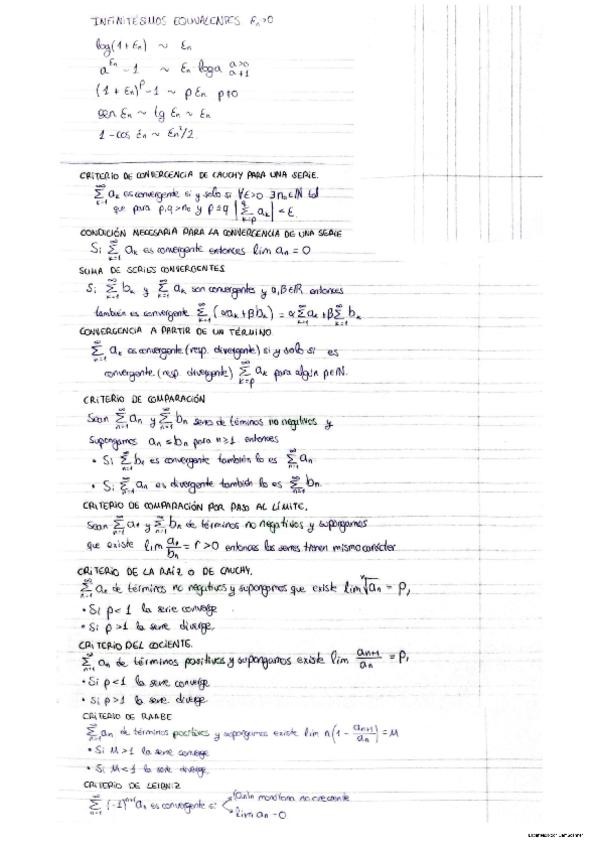 INFINITÉSIMOS EQUIVALENTES εn→0
log(1+εn) ~ εn
a^εn - 1 ~ εn log a a>0 a≠1
(1+εn)^p - 1 ~ pεn p≠0
sen εn ~ tg εn ~ εn
1-cos εn ~ εn²/2
CRITERIO DE CONVERGENCIA DE CAUCHY PARA UNA SERIE.
∑_{k=1}^∞ ak es convergente si y solo si ∀ε>0 ∃n0∈ℕ tal
que para p,q>n0 y p≤q |∑_{k=p}^q ak| < ε.
CONDICIÓN NECESARIA PARA LA CONVERGENCIA DE UNA SERIE
Si ∑_{k=1}^∞ ak es convergente entonces lim an = 0
SUMA DE SERIES CONVERGENTES
Si ∑_{k=1}^∞ bk y ∑_{k=1}^∞ ak son convergentes y α,β∈ℝ entonces
también es convergente ∑_{k=1}^∞ (αak+βbk) = α∑_{k=1}^∞ ak + β∑_{k=1}^∞ bk
CONVERGENCIA A PARTIR DE UN TÉRMINO.
∑_{k=1}^∞ ak es convergente (resp. divergente) si y solo si es
convergente (resp. divergente) ∑_{k=p}^∞ ak para algún p∈ℕ.
CRITERIO DE COMPARACIÓN
Sean ∑_{n=1}^∞ an y ∑_{n=1}^∞ bn series de términos no negativos y
supongamos an ≤ bn para n≥1 entonces
• Si ∑_{n=1}^∞ bn es convergente también lo es ∑_{n=1}^∞ an
• Si ∑_{n=1}^∞ an es divergente también lo es ∑_{n=1}^∞ bn.
CRITERIO DE COMPARACIÓN POR PASO AL LÍMITE.
Sean ∑_{n=1}^∞ an y ∑_{n=1}^∞ bn de términos no negativos y supongamos
que existe lim an/bn = r > 0 entonces las series tienen mismo carácter
CRITERIO DE LA RAÍZ O DE CAUCHY.
∑_{n=1}^∞ an de términos no negativos y supongamos que existe lim ⁿ√an = ρ,
• Si ρ<1 la serie converge
• Si ρ>1 la serie diverge,
CRITERIO DEL COCIENTE.
∑_{n=1}^∞ an de términos positivos y supongamos existe lim an+1/an = ρ,
• Si ρ<1 la serie converge
• Si ρ>1 la serie diverge
CRITERIO DE RAABE
∑_{n=1}^∞ an de términos positivos y supongamos existe lim n(1 - an+1/an) = M
• Si M>1 la serie converge
• Si M<1 la serie diverge,
CRITERIO DE LEIBNIZ
∑_{n=1}^∞ (-1)^{n+1} an es convergente si
monótona no creciente
lim an = 0